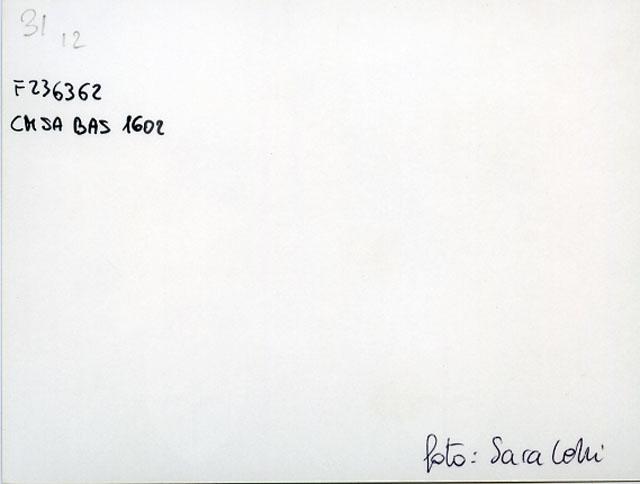 31
12
F236362
CMSA BAS 1602
foto: Sara